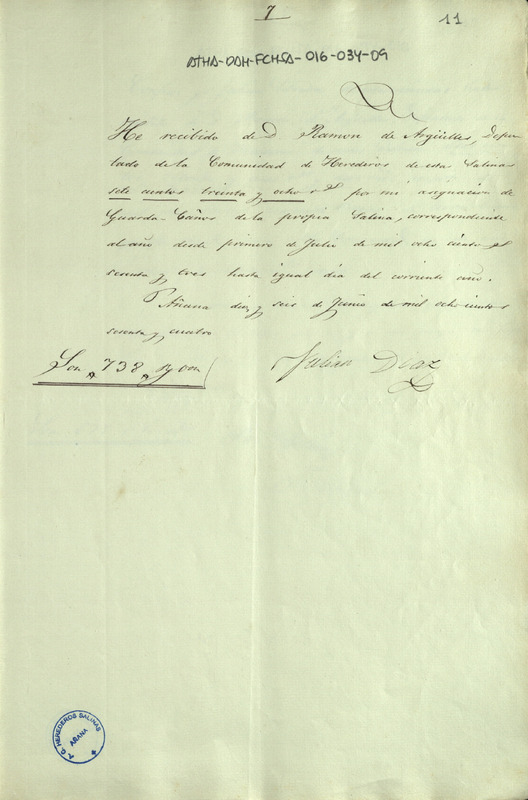 7
11
ATHA-DAH-FCHSA-016-034-09
He recibido de D Ramon de Argüelles, Depu
tado de la Comunidad de Herederos de esta Salina
siete cientos treinta y ocho por mi asignacion de
Guarda-Caños de la propia Salina, correspondiente
al año desde primero de Julio de mil ocho cientos
sesenta y tres hasta igual dia del corriente año.
Añana diez y seis de Junio de mil ocho cientos
sesenta y cuatro
Son 738 rs von
Julian Diaz
HEREDEROS SALINAS
AÑANA